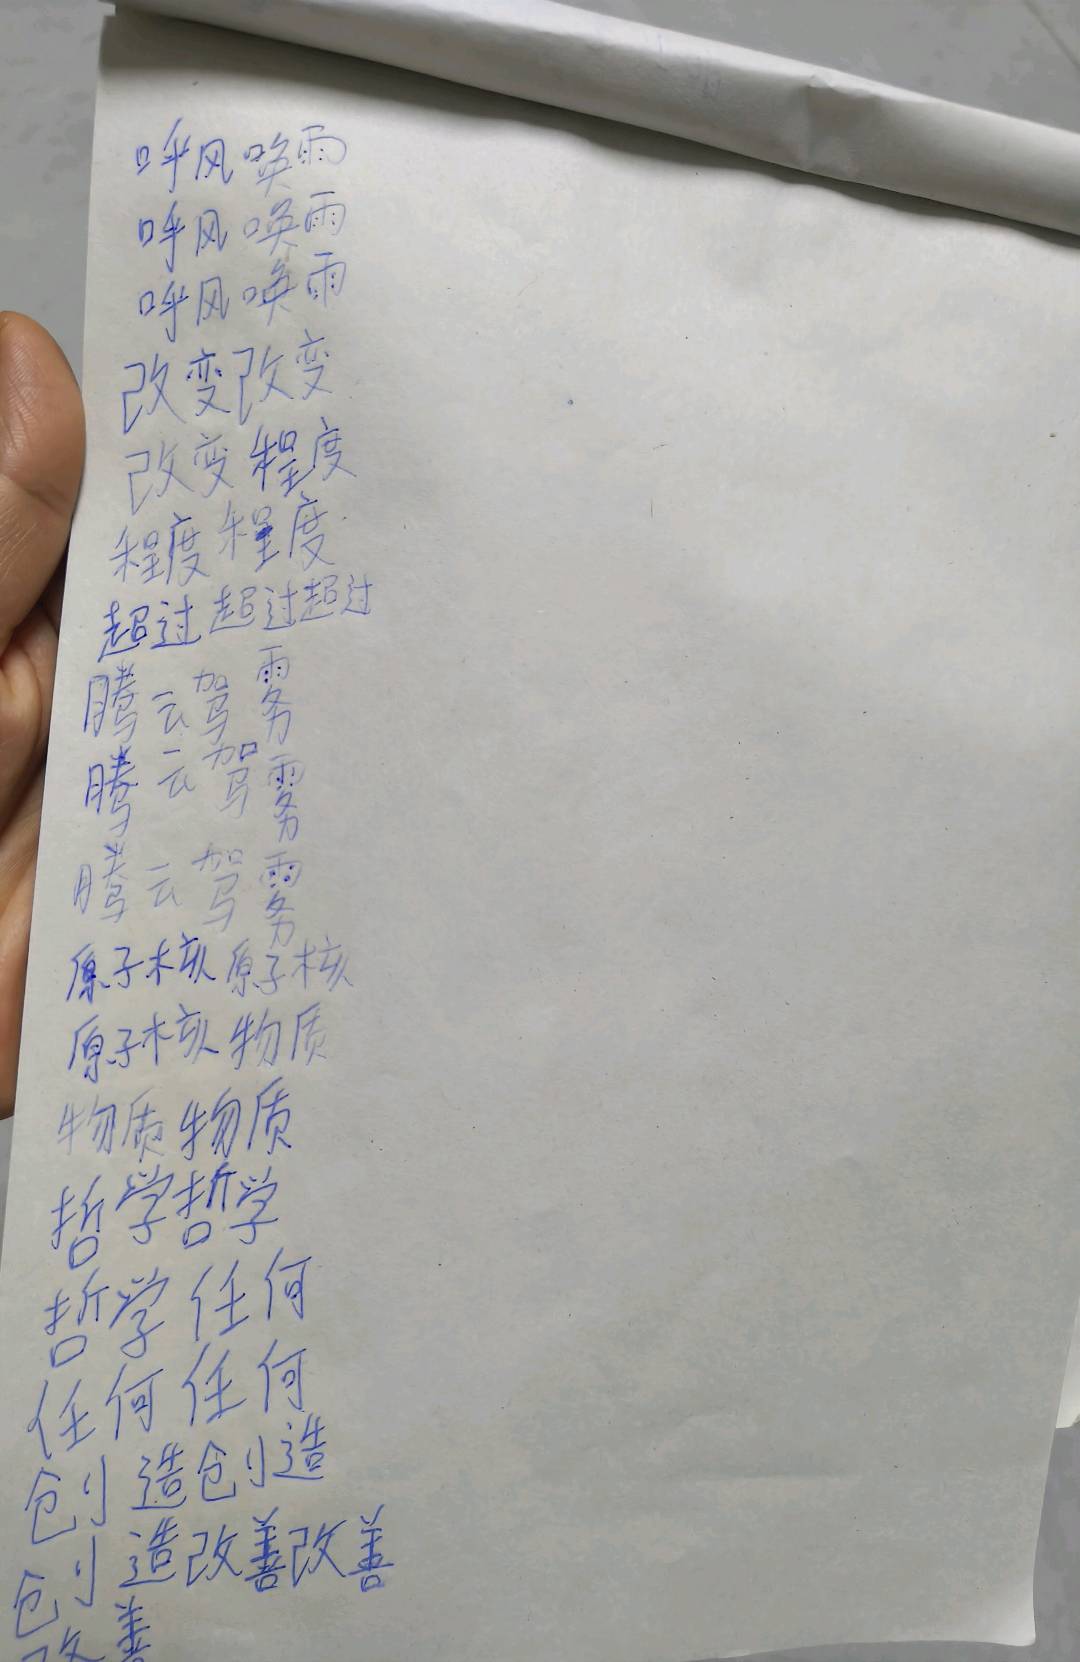 呼风唤雨
呼风唤雨
呼风唤雨
改变改变
改变程度
程度程度
超过超过超过
腾云驾雾
腾云驾雾
腾云驾雾
原子核原子核
原子核物质
物质物质
哲学哲学
哲学任何
任何任何
创造创造
创造改善改善
改善